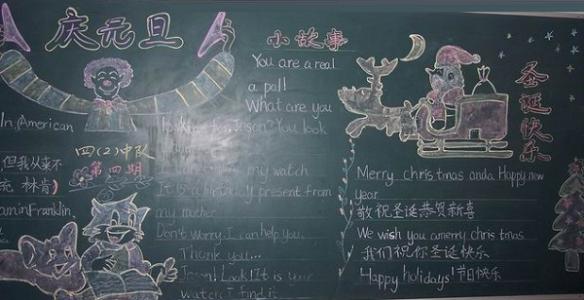 庆元旦
In American
但我从来不
林肖)
Franklin
四(2)中队
第四期
小故事
You are a real
a pal!
What are you
You look
my watch
It is a birthday present from
my mother
Don't worry. I can help you.
Thank you...
Look! It is your
watch I find it
圣诞快乐
Merry christmas and a Happy new
year
敬祝圣诞恭贺新喜
We wish you amerry christmas
我们祝你圣诞快乐
Happy holidays!节日快乐